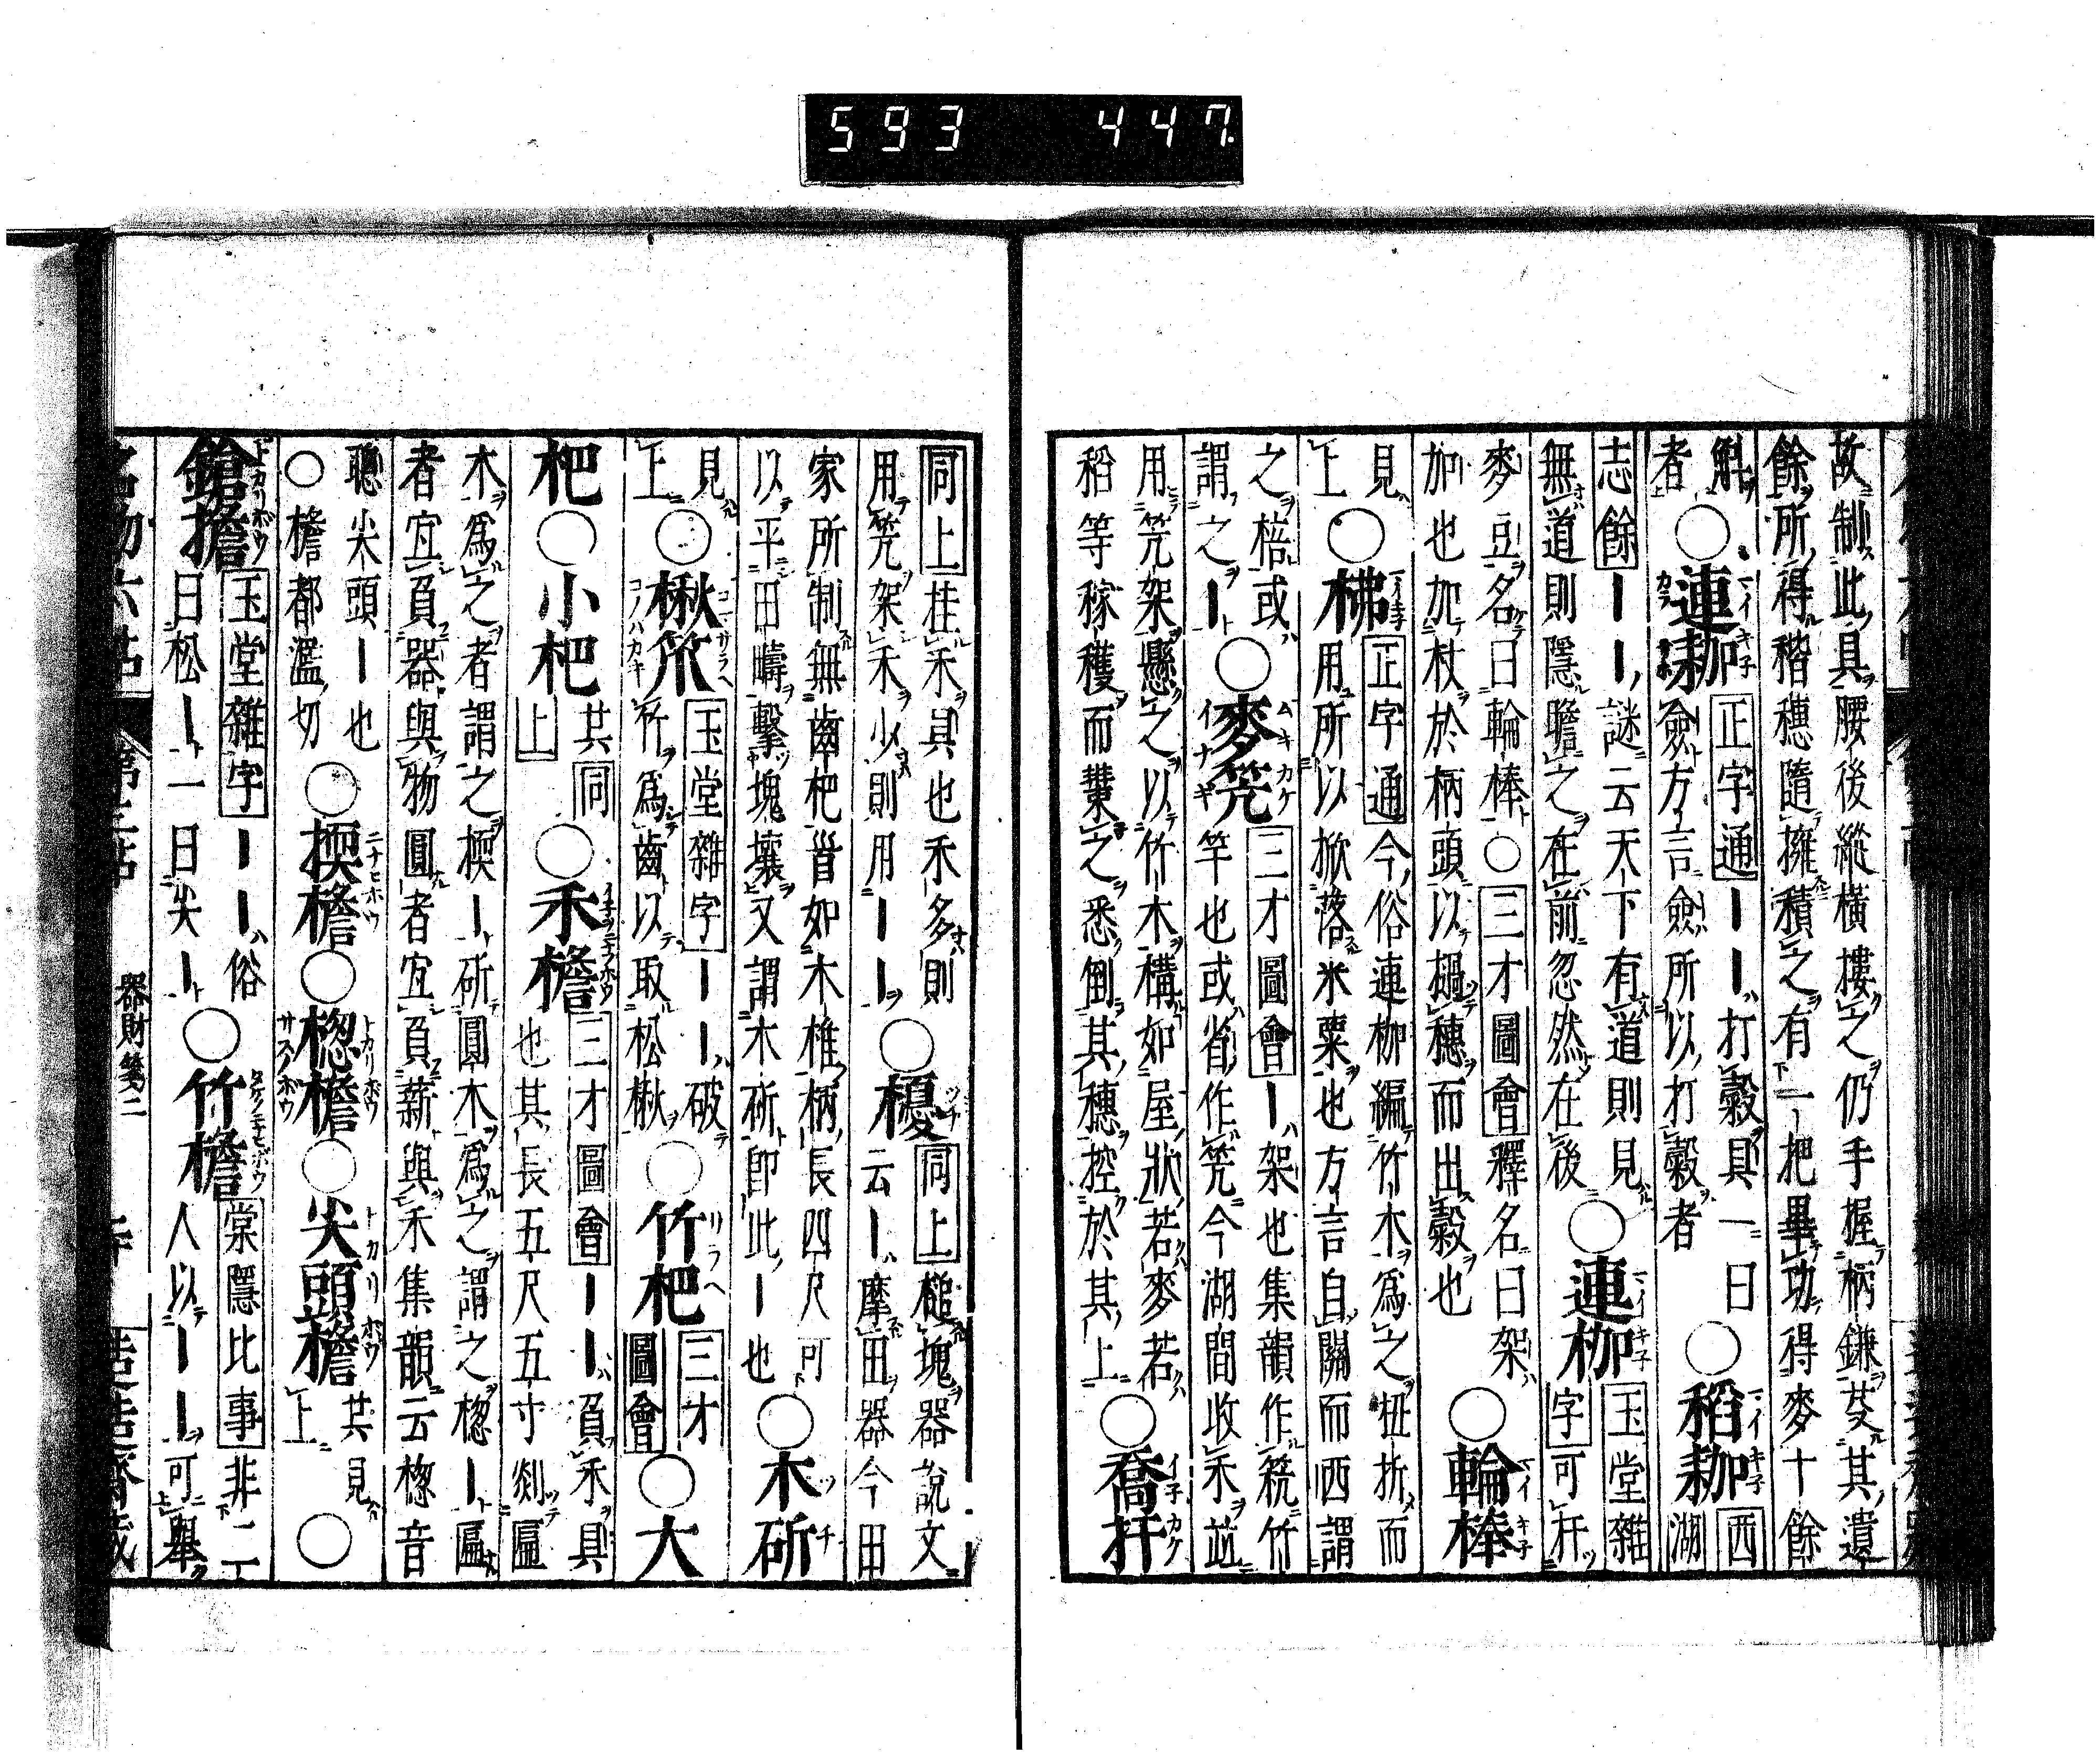 593 447
故制此具腰後縱橫摟之仍手握柄鎌芟其遺
餘所得稭穗隨擁積之有一把畢功得麥十餘
斛者○連耞正字通ーー打穀具一曰僉方言僉所以打穀者○稻耞西湖
志餘ーー謎云天下有道則見無道則隱瞻之在前忽然在後○連枷玉堂雜字可打
麥豆名曰輪棒○三才圖會釋名曰架加也加杖於柄頭以撾穗而出穀也○輪棒
見上○梻正字通今俗連枷編竹木爲之扭折而用所以掀落米粟也方言自關而西謂
之棓或謂之ー○麥笐三才圖會ー架也集韻作䇶竹竿也或省作笐今湖間收禾並
用笐架懸之以竹木構如屋狀若麥若稻等稼穫而䕠之悉倒其穗控於其上○喬扦
同上挂禾具也禾多則用笐架禾少則用ーー○櫌同上槌塊器說文云ー摩田器今田
家所制無齒杷首如木椎柄長四尺可以平田疇擊塊壤又謂木斫卽此ー也○木斫
見上○楸笊玉堂雜字ーー破竹爲齒以取松楸○竹杷三才圖會○大
杷○小杷共同上○禾檐三才圖會ーー負禾具也其長五尺五寸剡匾
木爲之者謂之楔ー斫圓木爲之謂之楤ー匾者宜負器與物圓者宜負薪與禾集韻云楤音
聰尖頭ー也○檐都濫切○楔檐○楤檐○尖頭檐共見上○
鎗擔玉堂雜字ーー俗曰松ー一曰尖ー○竹檐棠隱比事非二人以ーー可擧
器財箋二